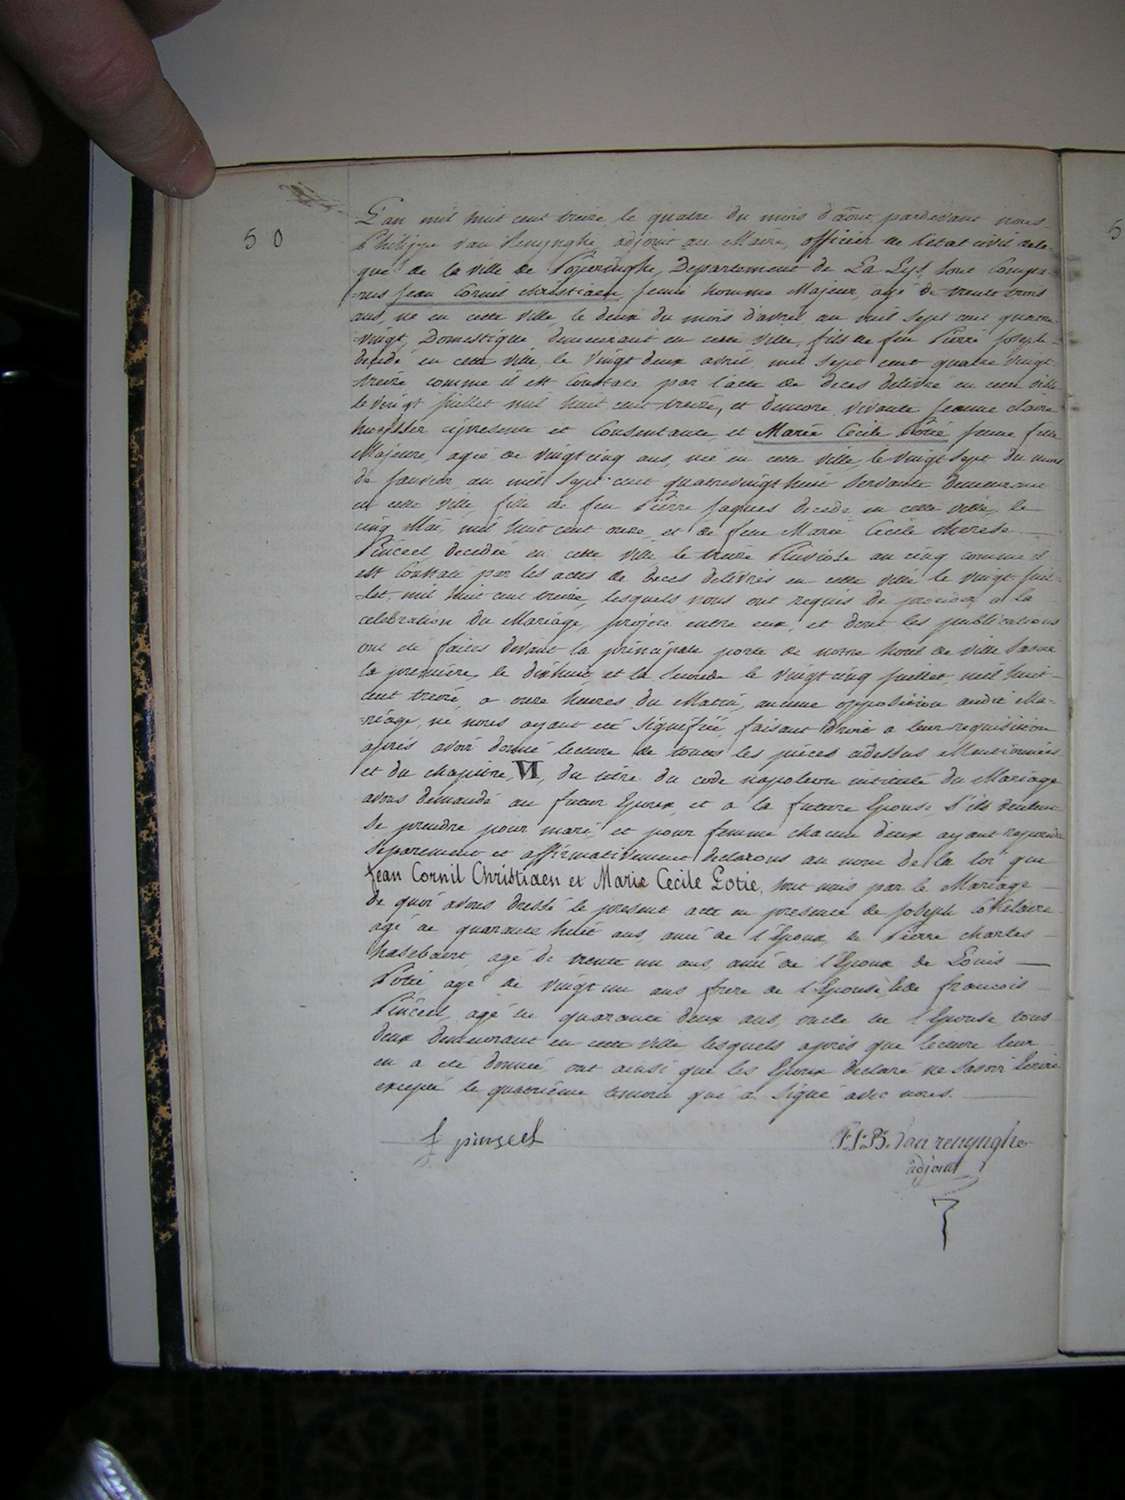 50
L'an mil huit cent treize le quatre du mois d'aôut, pardevant nous
Philippe Van Renynghe, adjoint au Maire, officier de l'etat civil dele-
gué de la ville de Poperinghe, Departement de La Lys, sont Compa-
rus Jean Cornil christiaen, jeune homme Majeur, agé de trente trois
ans, né en cette ville, le deux du mois d'avril, an mil sept cent quatre-
vingt, Domestique demeurant en cette ville, fils de feu Pierre Joseph
decedé en cette ville, le vingt deux avril mil sept cent quatre vingt
treize comme il est Constaté par l'acte de deces delivré en cette ville
le vingt juillet mil huit cent treize, et d'encore vivante jeanne claire
cipresente et Consentante et Marie Cecile Potié jeune fille
Majeure, agée de vingt cinq ans, née en cette ville, le vingt sept du mois
de janvier an mil sept cent quatrevingt huit servante demeurant
en cette ville, fille de feu Pierre jaques decedé en cette ville, le
cinq Mai, mil huit cent onze, et de feue Marie Cecile therese
Pinceel decedée en cette ville le treize Pluviose an cinq comme il
est Constaté par les actes de deces delivrés en cette ville le vingt juil-
-let, mil huit cent treize, lesquels nous ont requis de proceder a la
celebration du Mariage, projeté entre eux, et dont les publications
ont été faites devant la principale porte de notre hotel de ville savoir
la premiere, le dixhuit et la seconde le vingt cinq juillet, mil huit-
cent treize, a onze heures du Matin, aucune opposition audit Ma-
-riage, ne nous ayant eté signifiée, faisant droit a leur requisition
aprés avoir donné lecture de toutes les piéces cidessus Mentionnées
et du chapitre, VI, du titre du code napoleon intitulé du Mariage
avons demandé au futur Epoux, et a la future Epouse, s'ils veulent
se prendre pour mari, et pour femme chacun d'eux ayant repondu
separement et affirmativement declarons au nom de la loi que
Jean Cornil Christiaen et Marie Cecile Potié, sont unis par le Mariage
de quoi avons dressé le present acte en presence de joseph
agé de quarante huit ans, ami de l'Epoux, de Pierre charles
hasebaert, agé de trente un ans, ami de l'Epoux de Louis
Potié, agé de vingt un ans frere de l'Epouse, & de francois
Pinceel, agé de quarante deux ans, oncle de l'Epouse, tous
deux demeurant en cette ville lesquels aprés que lecture leur
en a eté donnée ont ainsi que les Epoux declaré ne savoir Ecrire
excepté le quatriéme temoin qui a signé avec nous.
f pinseel
F.J.B. Van renynghe
adjoint